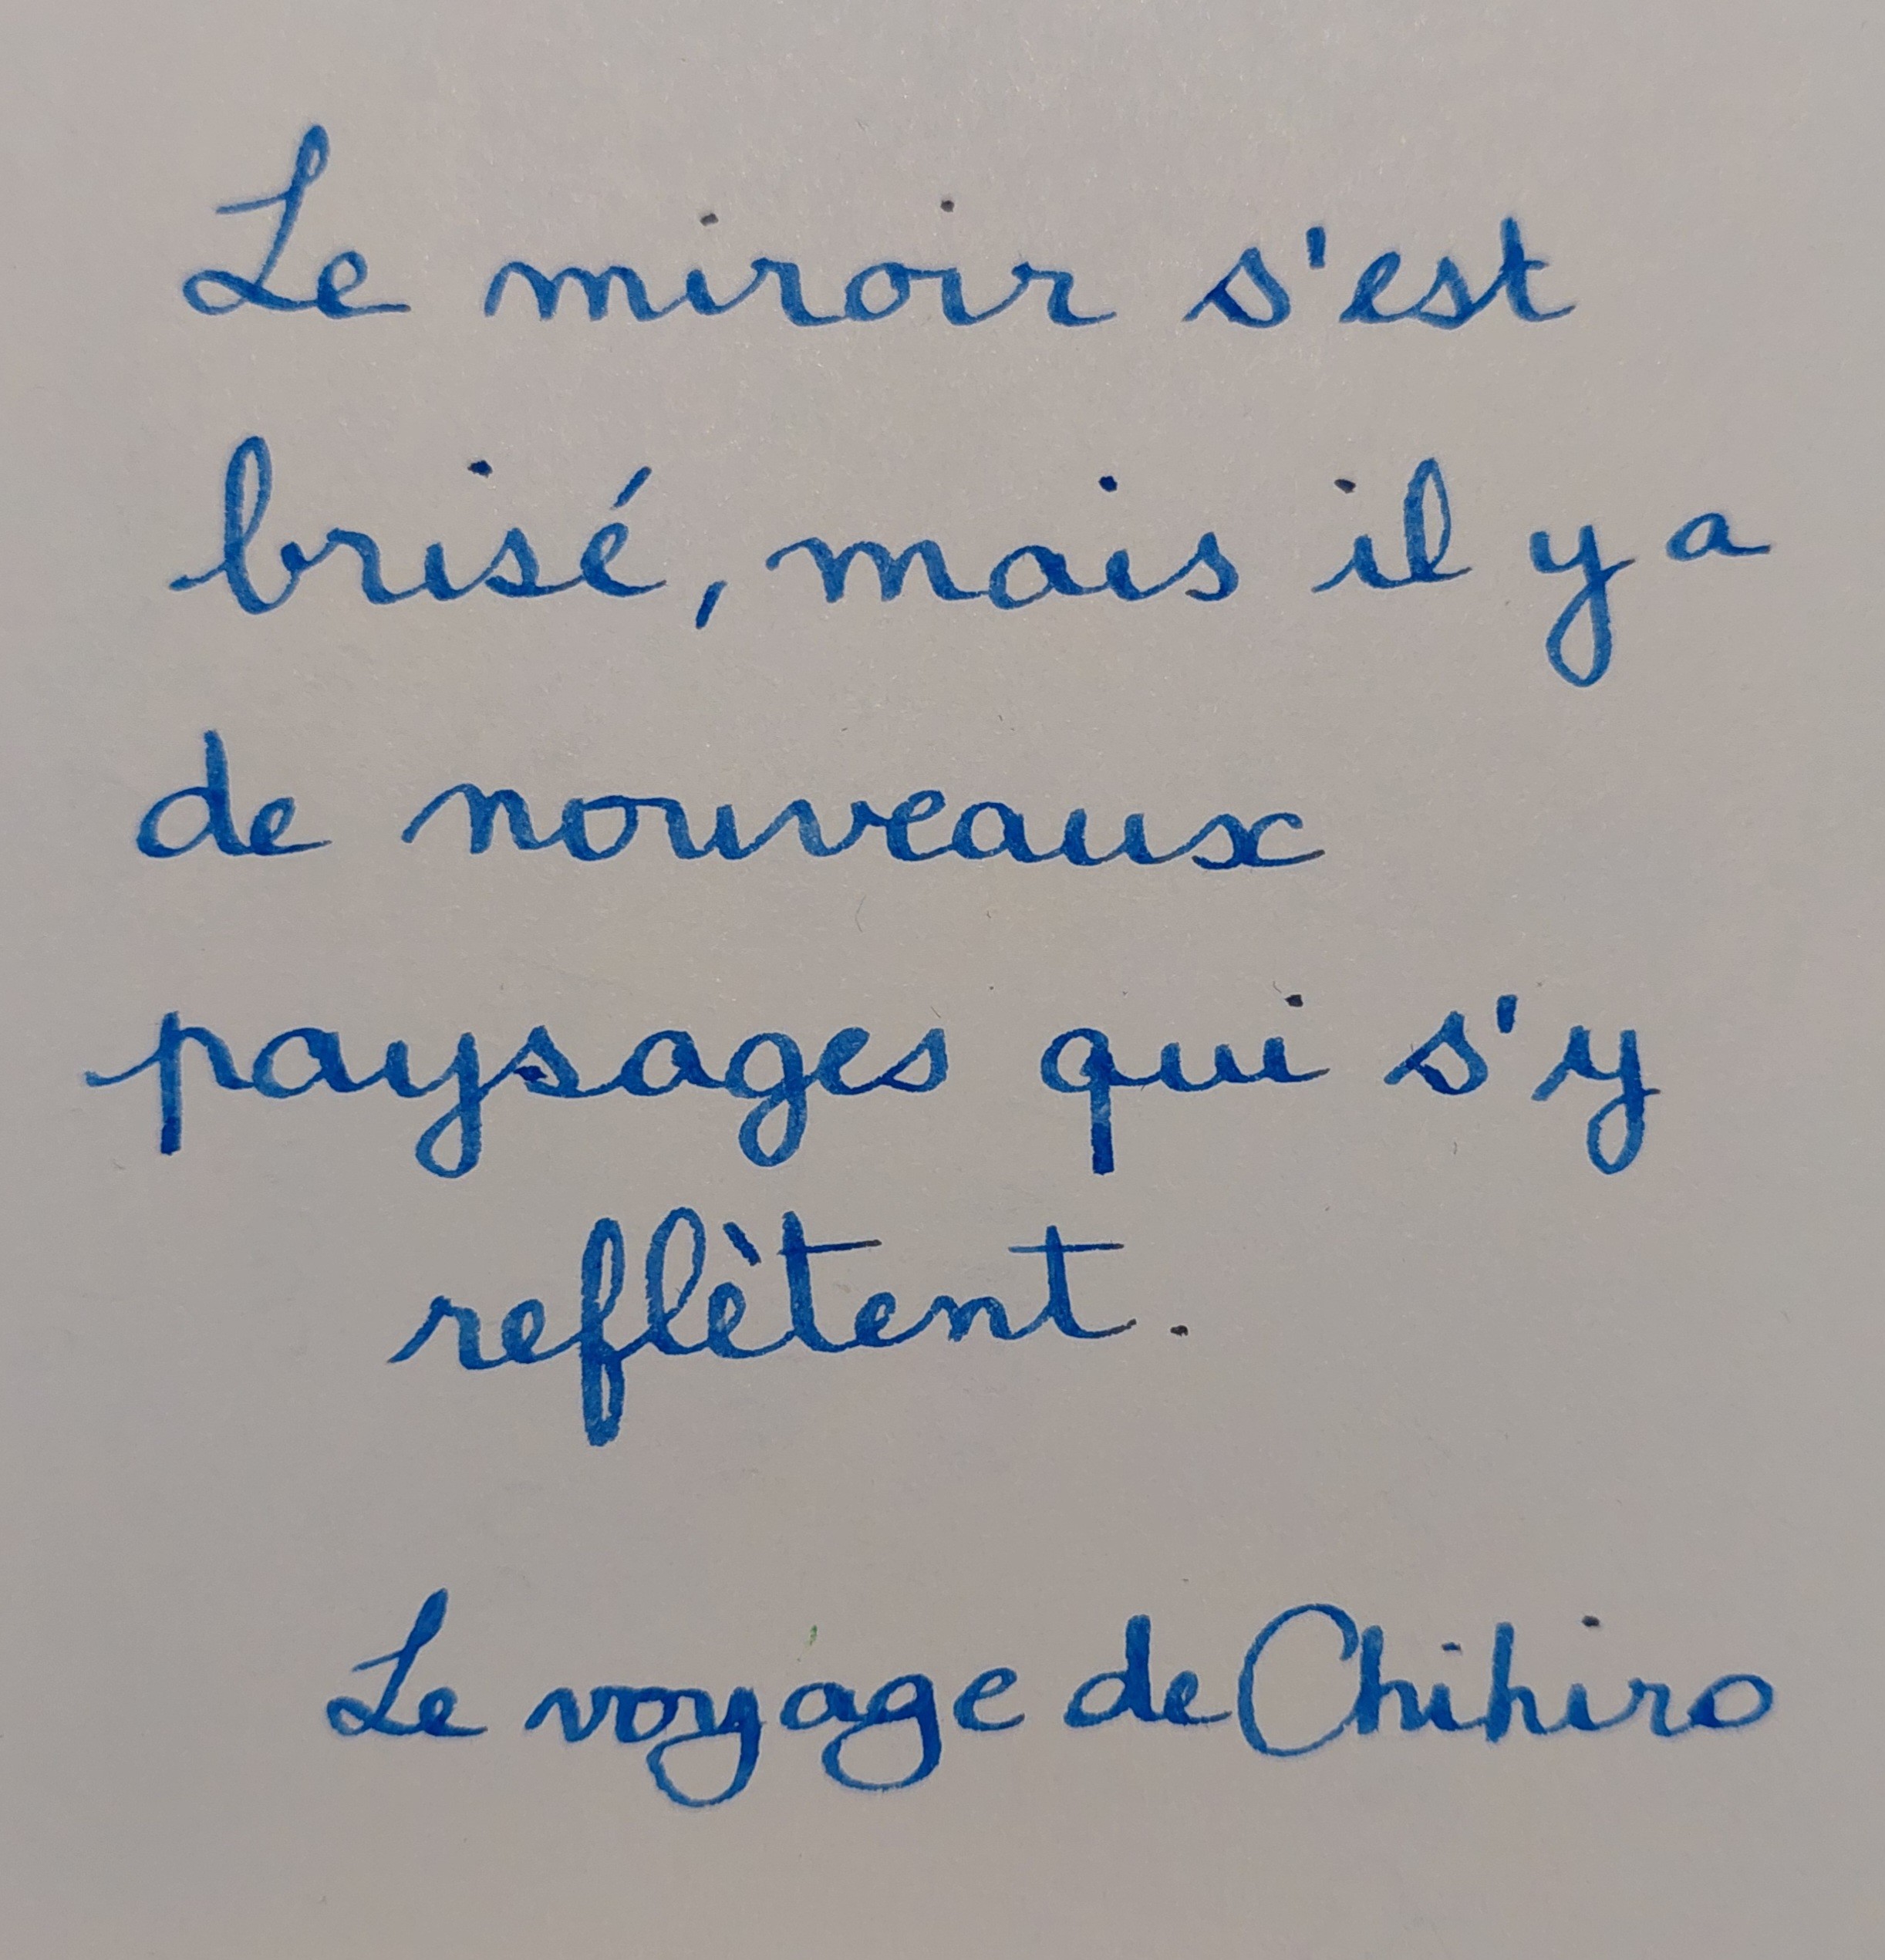 Le miroir s'est
brisé, mais il y a
de nouveaux
paysages qui s'y
reflètent.
Le voyage de Chihiro